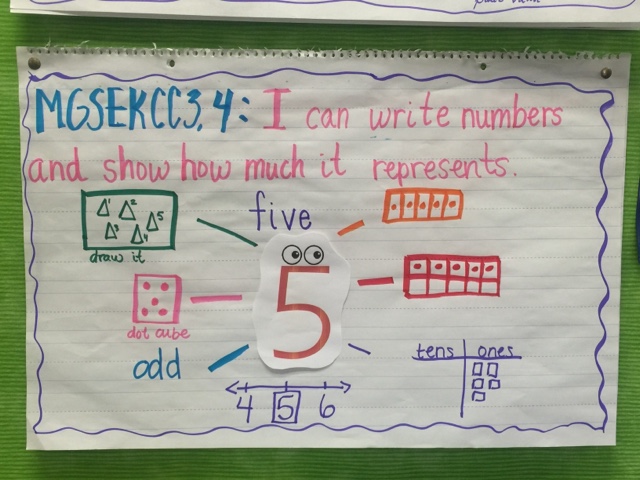 MGSEKCC3,4: I can write numbers
and show how much it represents.
five
Δ¹ Δ² Δ³ Δ⁴ Δ⁵
draw it
5
dot cube
odd
4 5 6
tens ones